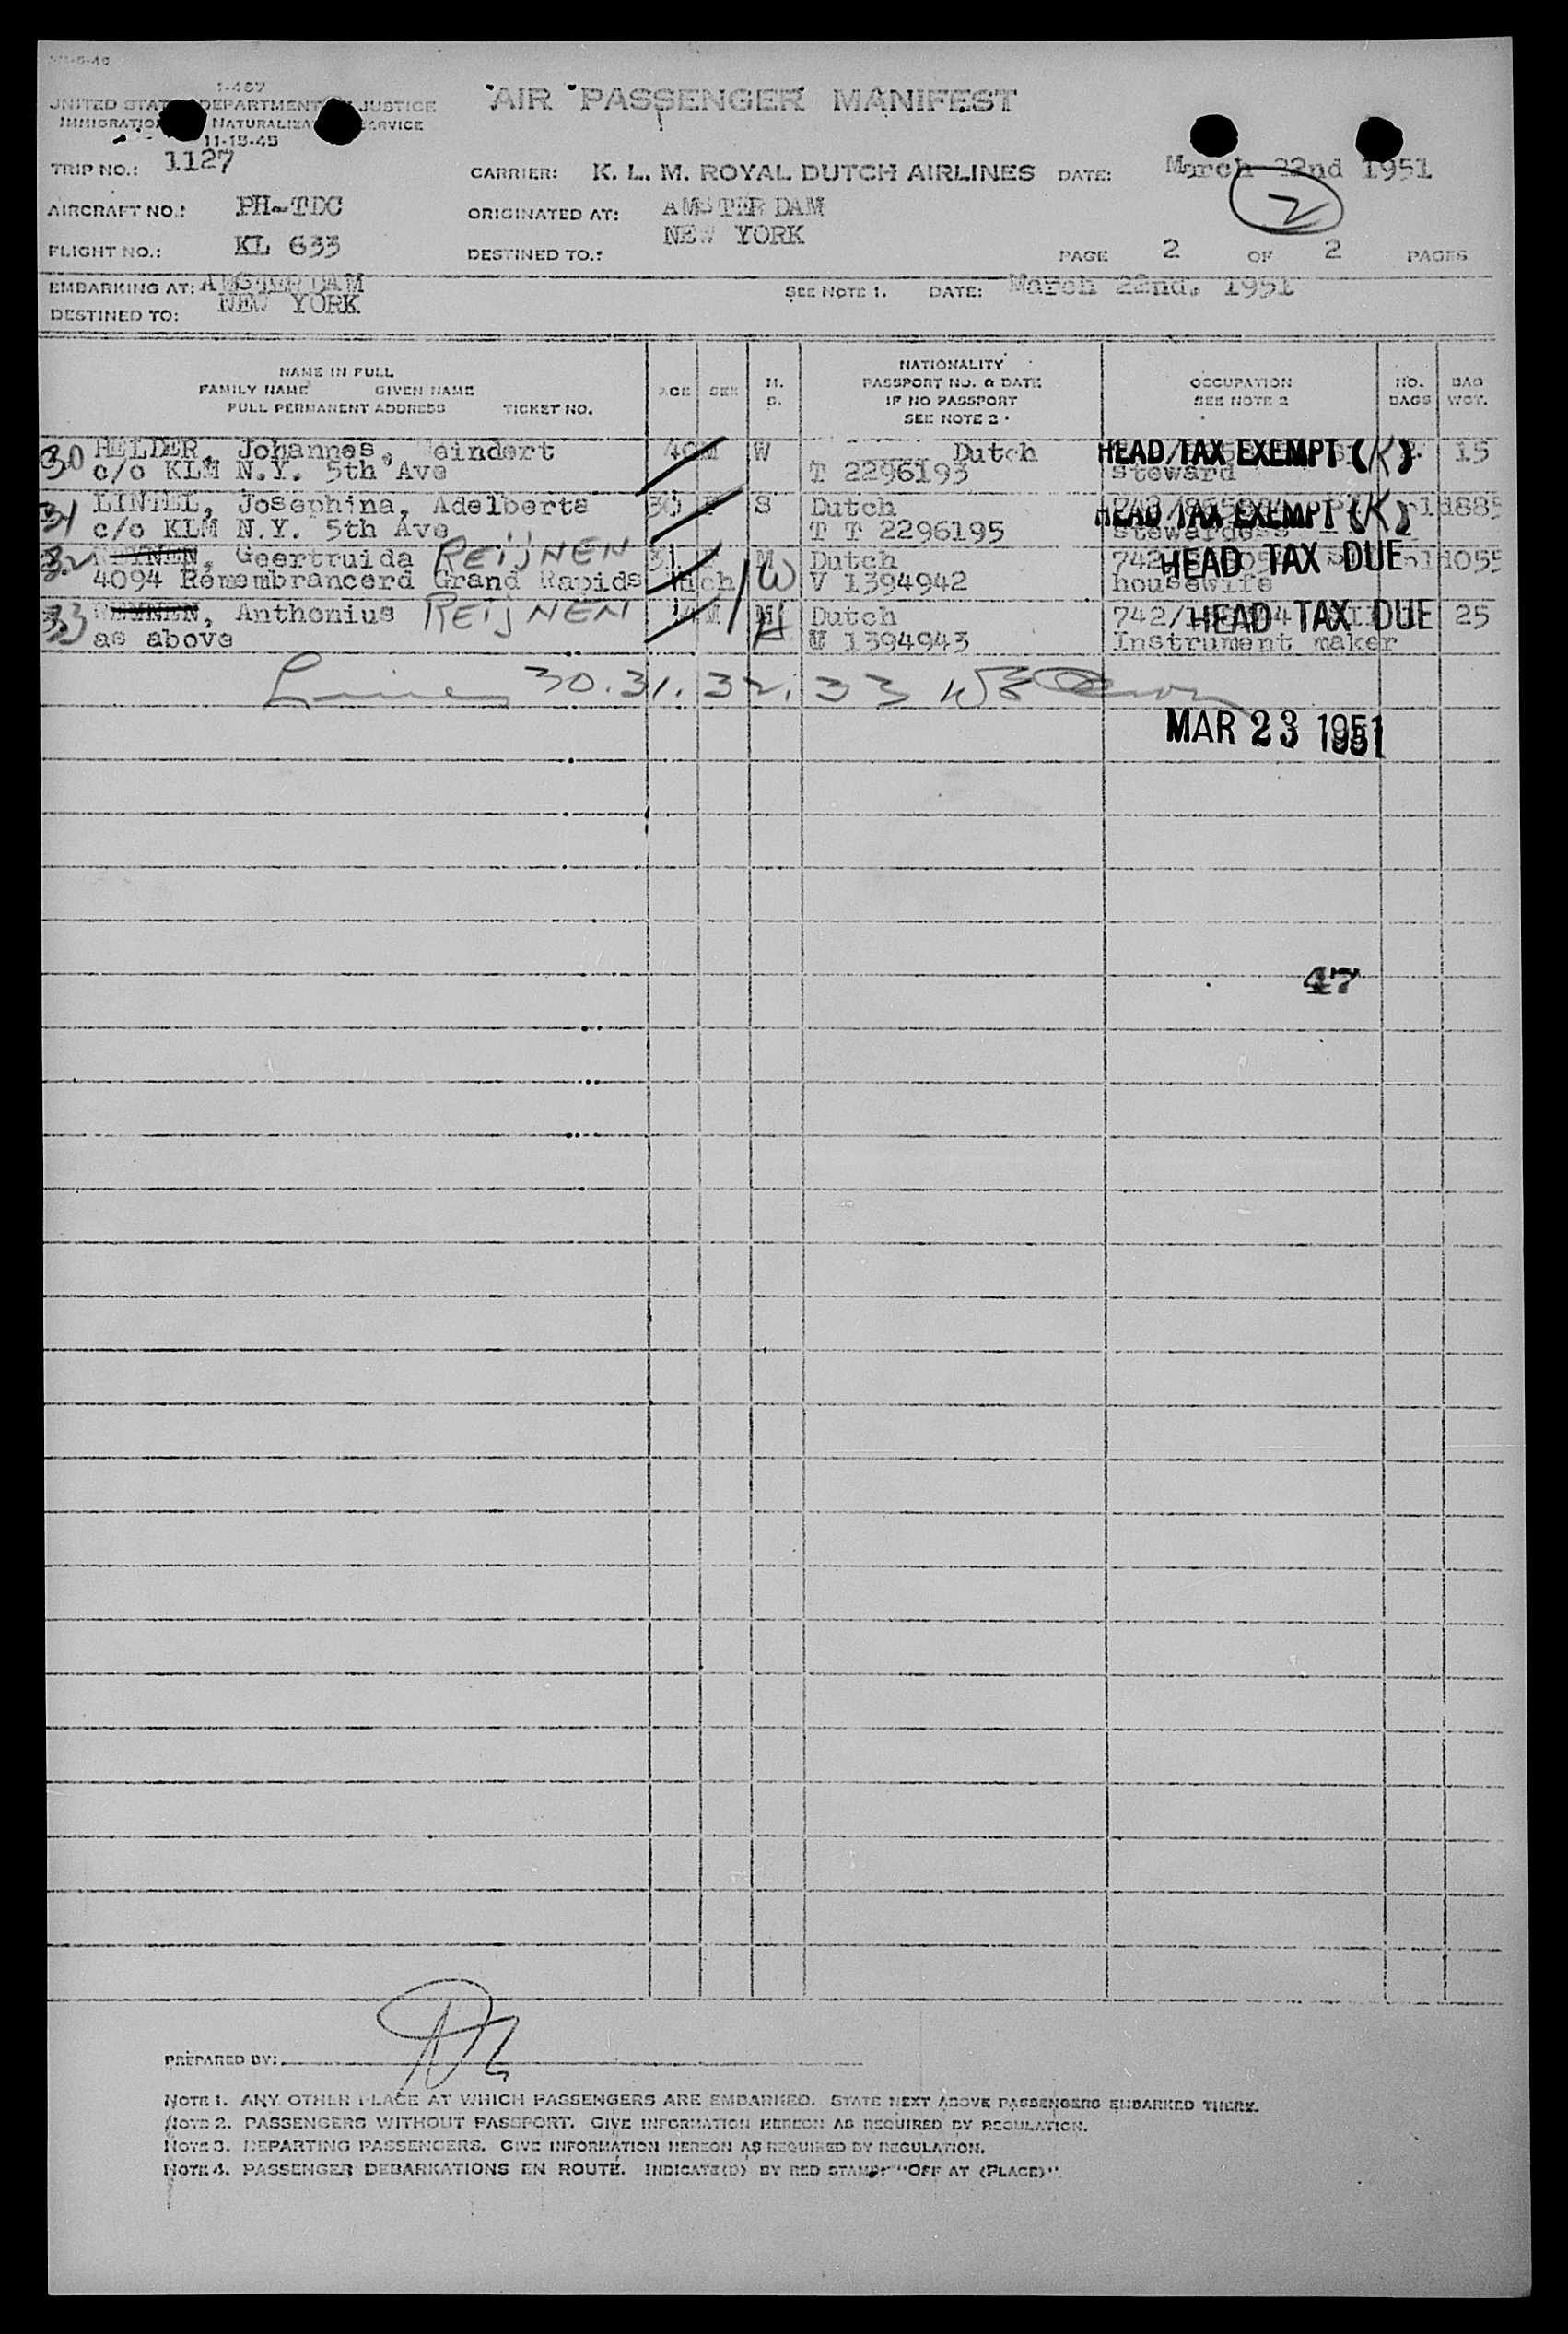 1-467
UNITED STATES DEPARTMENT JUSTICE
IMMIGRATION NATURALIZATION SERVICE
11-15-45
AIR PASSENGER MANIFEST
TRIP NO.: 1127
CARRIER: K. L. M. ROYAL DUTCH AIRLINES DATE: March 22nd 1951
2
AIRCRAFT NO.: PH-TDC
ORIGINATED AT: AMSTERDAM
FLIGHT NO.: KL 633
DESTINED TO.: NEW YORK
PAGE 2 OF 2 PAGES
EMBARKING AT: AMSTERDAM
SEE NOTE 1. DATE: March 22nd. 1951
DESTINED TO: NEW YORK
NAME IN FULL
FAMILY NAME GIVEN NAME
FULL PERMANENT ADDRESS TICKET NO.
AGE SEX M. S.
NATIONALITY
PASSPORT NO. & DATE
IF NO PASSPORT
SEE NOTE 2
OCCUPATION
SEE NOTE 2
NO. BAGS
BAG WGT.
30 HELDER, Johannes, Meindert 40 M W Dutch HEAD TAX EXEMPT (K) 15
c/o KLM N.Y. 5th Ave T 2296193 steward
31 Josephina, Adelberta 30 F S Dutch HEAD TAX EXEMPT (K)
c/o KLM N.Y. 5th Ave T T 2296195 stewardess
32 Geertruida REIJNEN M Dutch HEAD TAX DUE
4094 Remembrancerd Grand Rapids Mich W V 1394942 housewife
33 Anthonius REIJNEN M M Dutch HEAD TAX DUE 25
as above 1394943 Instrument maker
30. 31. 32. 33
MAR 23 1951
47
PREPARED BY:
NOTE 1. ANY OTHER PLACE AT WHICH PASSENGERS ARE EMBARKED. STATE NEXT ABOVE PASSENGERS EMBARKED THERE.
NOTE 2. PASSENGERS WITHOUT PASSPORT. GIVE INFORMATION HEREON AS REQUIRED BY REGULATION.
NOTE 3. DEPARTING PASSENGERS. GIVE INFORMATION HEREON AS REQUIRED BY REGULATION.
NOTE 4. PASSENGER DEBARKATIONS EN ROUTE. INDICATE(D) BY RED STAMP: "OFF AT (PLACE)".